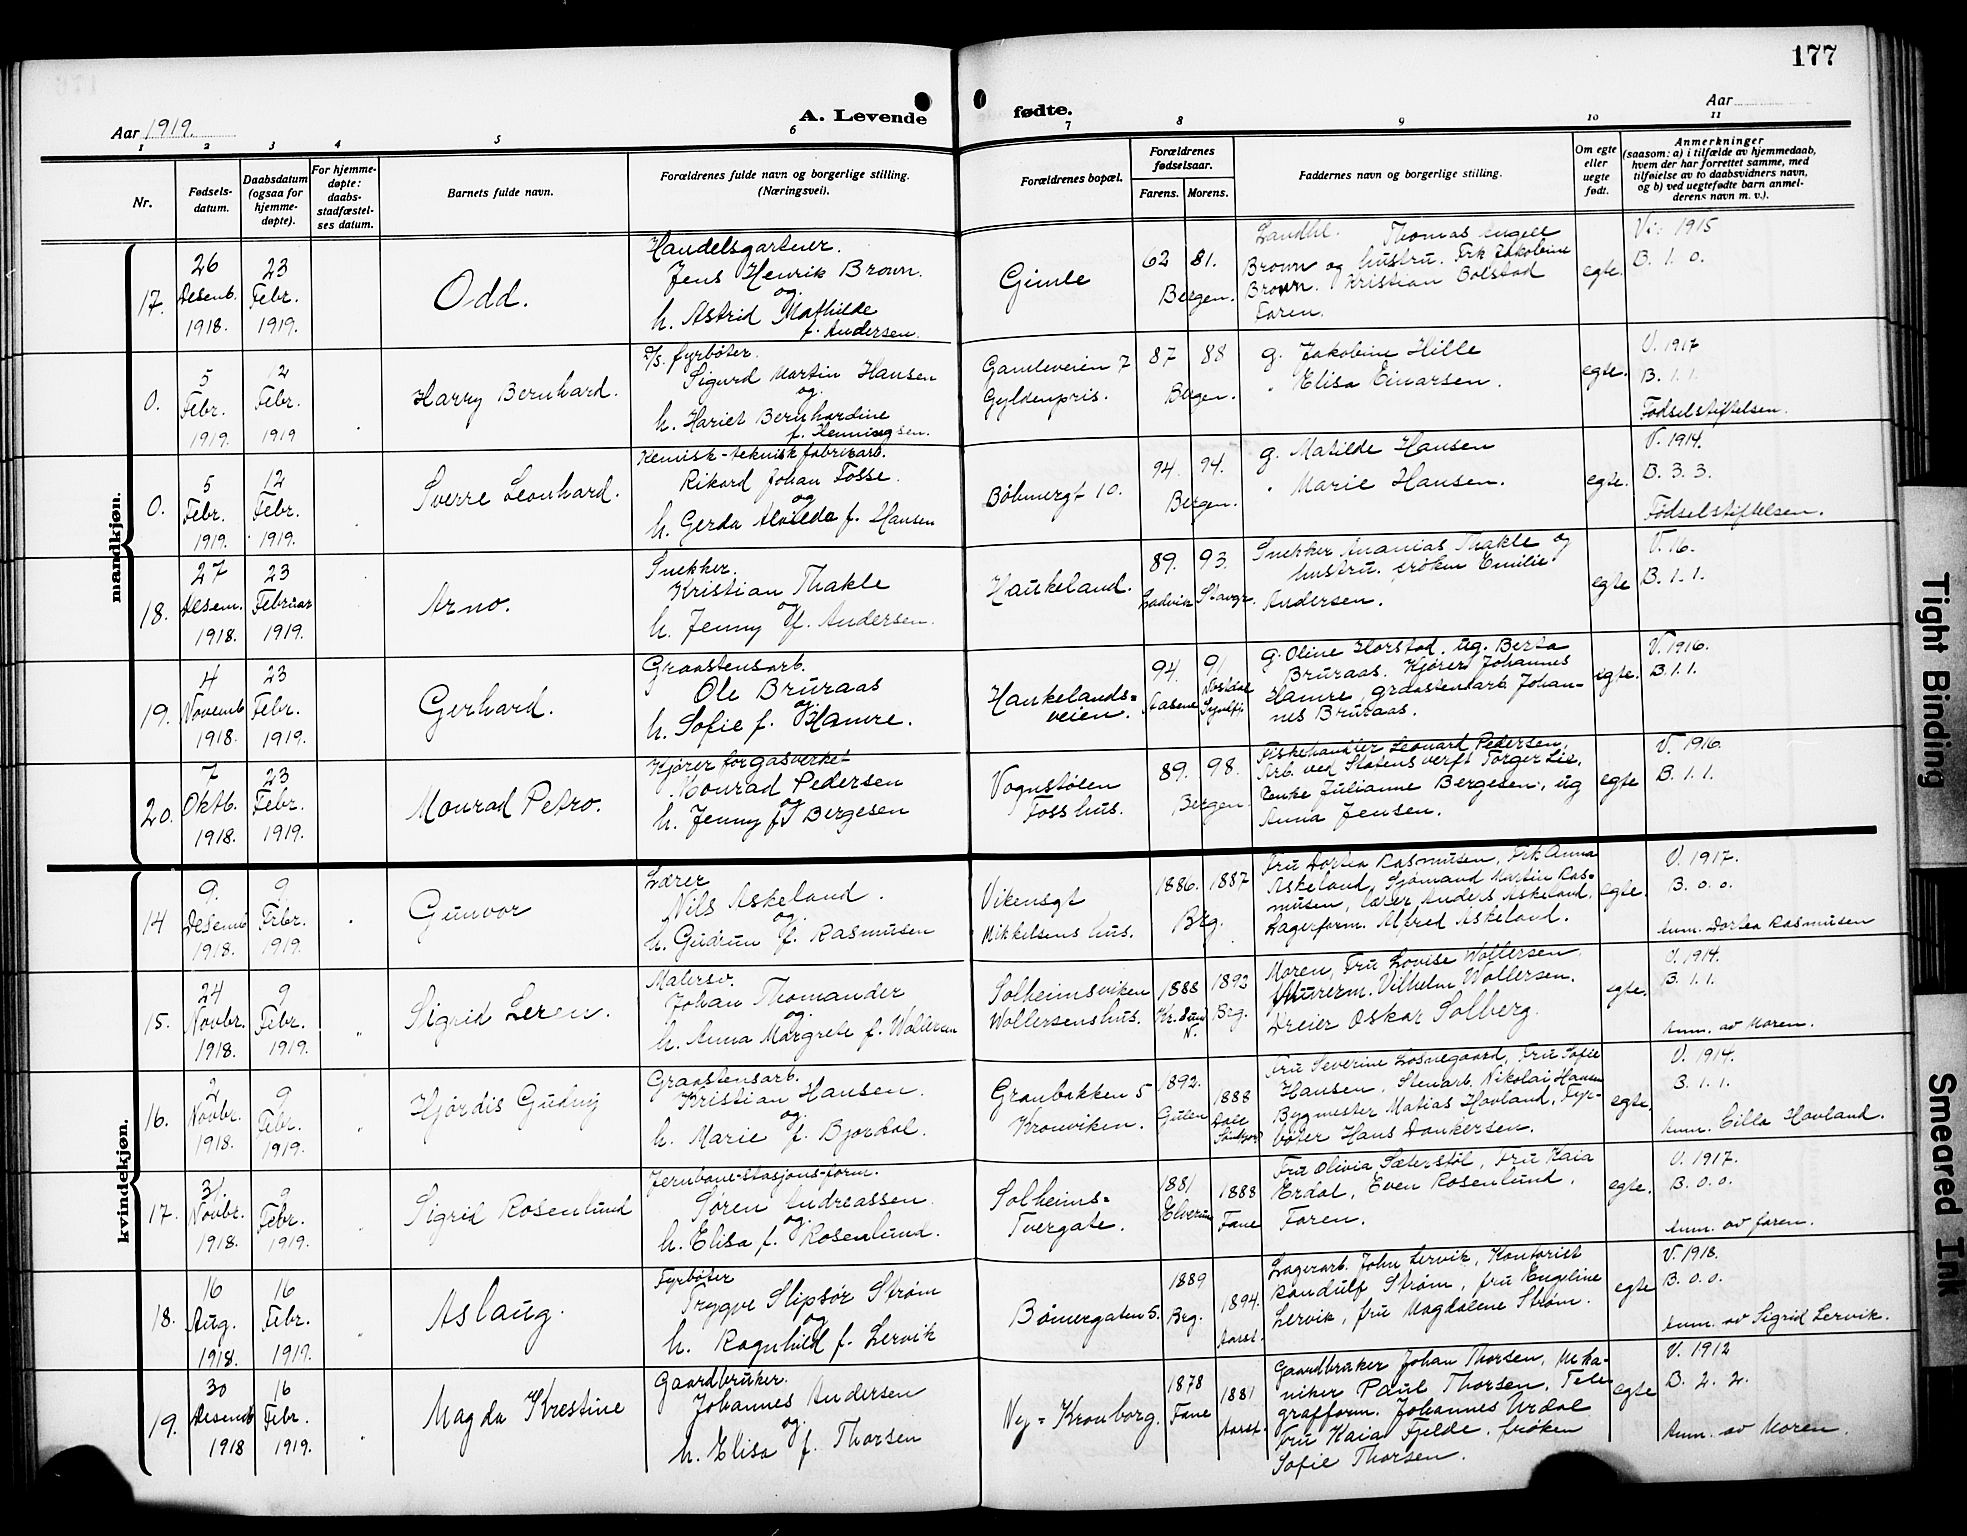 177
Aar 1919.
A. Levende fødte.
Aar
1 2 3 4 5 6 7 8 9 10 11
Nr.
Fødsels-
datum.
Daabsdatum
(ogsaa for
hjemme-
døpte).
For hjemme-
døpte:
daabs-
stadfæstel-
ses datum.
Barnets fulde navn.
Forældrenes fulde navn og borgerlige stilling.
(Næringsvei).
Forældrenes bopæl.
Forældrenes
fødselsaar.
Farens. Morens.
Faddernes navn og borgerlige stilling.
Om egte
eller
uegte
født.
Anmerkninger
(saasom: a) i tilfælde av hjemmedaab,
hvem der har forrettet samme, med
tilføielse av to daabsvidners navn,
og b) ved uegtefødte barn anmel-
derens navn m. v.).
mandkjøn.
17.
26
Desemb.
1918.
23
Febr.
1919.
Odd.
Handelsgartner.
Jens Henrik Brown.
og
h. Astrid Mathilde
f. Andersen.
Gimle
62 81.
Bergen.
Landhl. Thomas Angell
Brown og hustru. Frk Jakobine
Brown. Kristian Bolstad
Faren.
egte.
Vi. 1915
B. 1. 0.
0.
5
Febr.
1919.
12
Febr.
1919
Harry Bernhard.
D/s. fyrbøter.
Sigurd Martin Hansen
og
h. Hariet Bernhardine
f. Henningsen.
Gamleveien 7
Gyldenpris.
87 88
Bergen.
g. Jakobine Hille
" Elisa Einarsen.
egte.
V. 1917
B. 1. 1.
Fødselstiftelsen.
0.
5
Febr.
1919.
12
Febr.
1919.
Sverre Leonhard.
Kemisk-teknisk fabrikarb.
Rikard Johan Fosse.
og
h. Gerda Alvilda f. Hansen
Bøhmergt 10.
94. 94.
Bergen.
g. Matilde Hansen
" Marie Hansen.
egte.
V. 1914.
B. 3. 3.
Fødselstiftelsen.
18.
27
Desem.
1918.
23
Februar
1919.
Arno.
Snekker.
Kristian Thakle
og
h. Jenny f. Andersen.
Haukeland.
89. 93.
Ladvik Stavgr.
Snekker Ananias Thakle og
hustru. frøken Emilie
Andersen.
egte
V. 16.
B. 1. 1.
19.
4
Novemb
1918.
23
Febr.
1919.
Gerhard.
Graastensarb.
Ole Bruraas
og
h. Sofie f. Hamre.
Haukelands-
veien.
94. 91
g. Oline Horstad, ug. Berta
Bruraas. Kjører Johannes
Hamre, graastensarb. Johan-
nes Bruraas.
egte.
V. 1916.
B. 1. 1.
20.
7
Oktb.
1918.
23
Febr.
1919.
Monrad Petro.
Kjører for gasverket
Konrad Pedersen
og
h. Jenny f. Bergesen
Vognstølen
Foss hus.
89. 98.
Bergen.
Fiskehandler Leonard Pedersen,
Arb. ved Statens verft Torger Lie,
Enke Julianne Bergesen, ug
Anna Jensen.
egte
V. 1916.
B. 1. 1.
kvindekjøn.
14
9.
Desemb
1918.
9
Febr.
1919.
Gunvor
Lærer
Nils Askeland.
og
h. Gudrun f. Rasmusen
Vikensgt
Mikkelsens hus.
1886. 1887
Brg.
Fru Dortea Rasmusen, Frk Anna
Askeland, Sjømand Martin Ras-
musen, lærer Anders Askeland,
Lagerform. Alfred Askeland.
egte.
V. 1917.
B. 0. 0.
Anm. Dortea Rasmusen
15.
24
Novbr.
1918.
9
Febr.
1919.
"
Sigrid Leren.
Malersv.
Johan Thomander
og
h. Anna Margrete f. Wollersen
Solheimsviken
Wollersenshus.
1888 1892
Kr. Sund Brg.
N.
Moren, Fru Lovise Wollersen.
Murerm. Vilhelm Wollersen.
Dreier Oskar Solberg.
egte.
V. 1914.
B. 1. 1.
Anm. av Moren.
16.
2
Novbr.
1918.
9
Febr.
1919.
"
Hjørdis Gudny
Graastensarb.
Kristian Hansen.
og
h. Marie f. Bjordal.
Granbakken 5
Kronviken.
1892. 1888
Gulen
Fru Severine Losnegaard, Fru Sofie
Hansen, Stenarb. Nikolai Hansen
Bygmester Matias Hovland, Fyr-
bøter Hans Dankersen.
egte.
V. 1914.
3. 1. 1.
Anm. Cilla Hovland.
17.
3.
Novbr.
1918.
9
Febr.
1919.
Sigrid Rosenlund
Jernbane-stasjons-form.
Søren Andreassen.
og
h. Elisa f. Rosenlund.
Solheims-
Tvergate.
1881 1888
Elverum Fane
Fru Olivia Sæterstøl, Fru Kaia
Erdal, Even Rosenlund,
Faren.
egte.
V. 1917.
B. 0. 0.
Anm. av faren.
18.
16
Aug.
1918.
16
Febr.
1919.
"
Aslaug.
Fyrbøter
Trygve Slipsør Strøm
og
h. Ragnhild f. Lervik
Bømergaten 5.
1889 1894.
Brg. Aarst.
Lagerarb. John Lervik, Kontorist
Randulf Strøm, fru Engeline
Lervik, fru Magdalene Strøm.
egte
V. 1918.
B. 0. 0.
Anm. av Sigrid Lervik.
19.
30
Desemb
1918
16
Febr.
1919.
Magda Krestine
Gaardbruker.
Johannes Andersen
og
h. Elisa f. Thorsen
Ny-Kronborg.
1878 1881
Fane Aarst.
Gaardbruker Johan Thorsen, Meka-
niker Paul Thorsen, Tele-
grafform. Johannes Urdal
Fru Kaia Fjelde, frøken
Sofie Thorsen.
egte
V. 1912
B. 2. 2.
Anm. av Moren.
Tight Binding
Smeared Ink